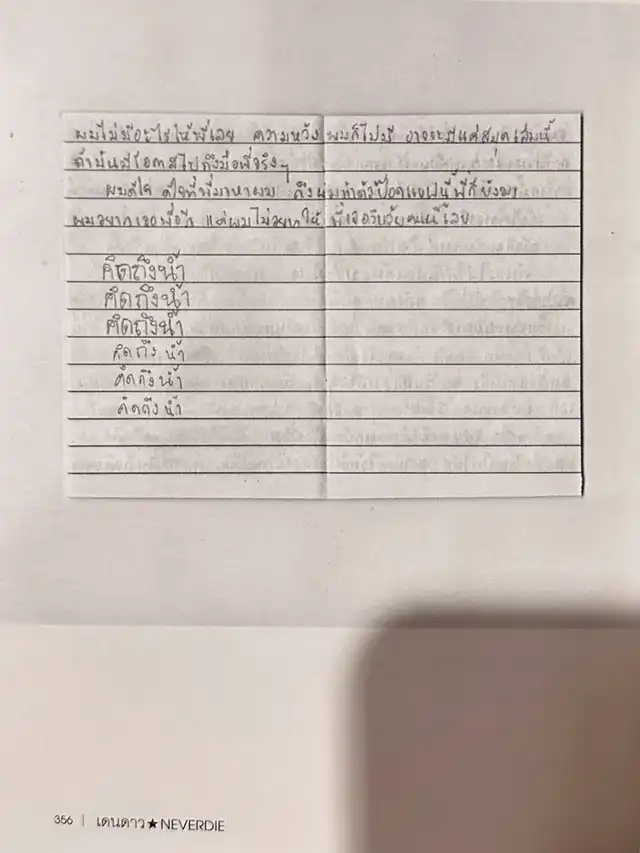 ผมไม่มีอะไรให้พี่เลย ความหวังผมก็ไม่มี อาจจะมีแค่สมุดเล่มนี้
ถ้ามันมีโอกาสไปถึงมือพี่จริงๆ
ผมดีใจ ดีใจที่พี่มาหาผม ถึงผมทำตัวป๊อดแบบนี้พี่ก็ยังมา
ผมอยากเจอพี่อีก แต่ผมไม่อยากให้พี่เจอวินัยคนนี้เลย
คิดถึงน้ำ
คิดถึงน้ำ
คิดถึงน้ำ
คิดถึงน้ำ
คิดถึงน้ำ
คิดถึงน้ำ
356 | เดนดาว★NEVERDIE